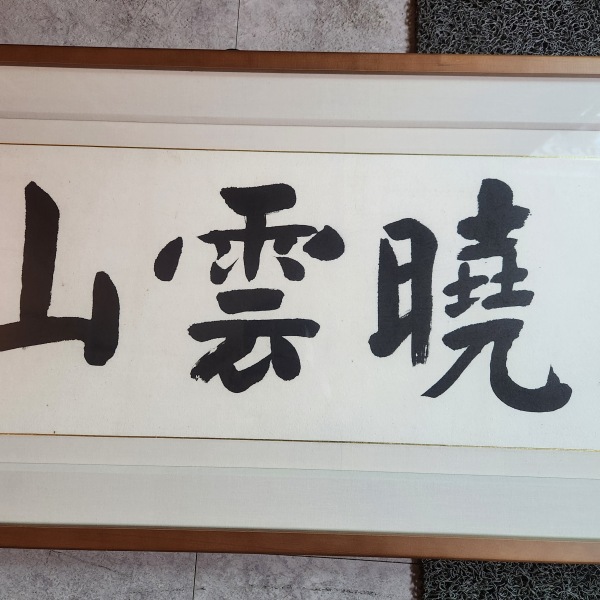 曉雲山